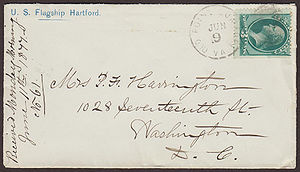 U. S. Flagship Hartford.
JUN
9
VA
Mrs P. F. Harrington
1028 Seventeenth St.
Washington
D. C.
Received Monday
June 11th 1877